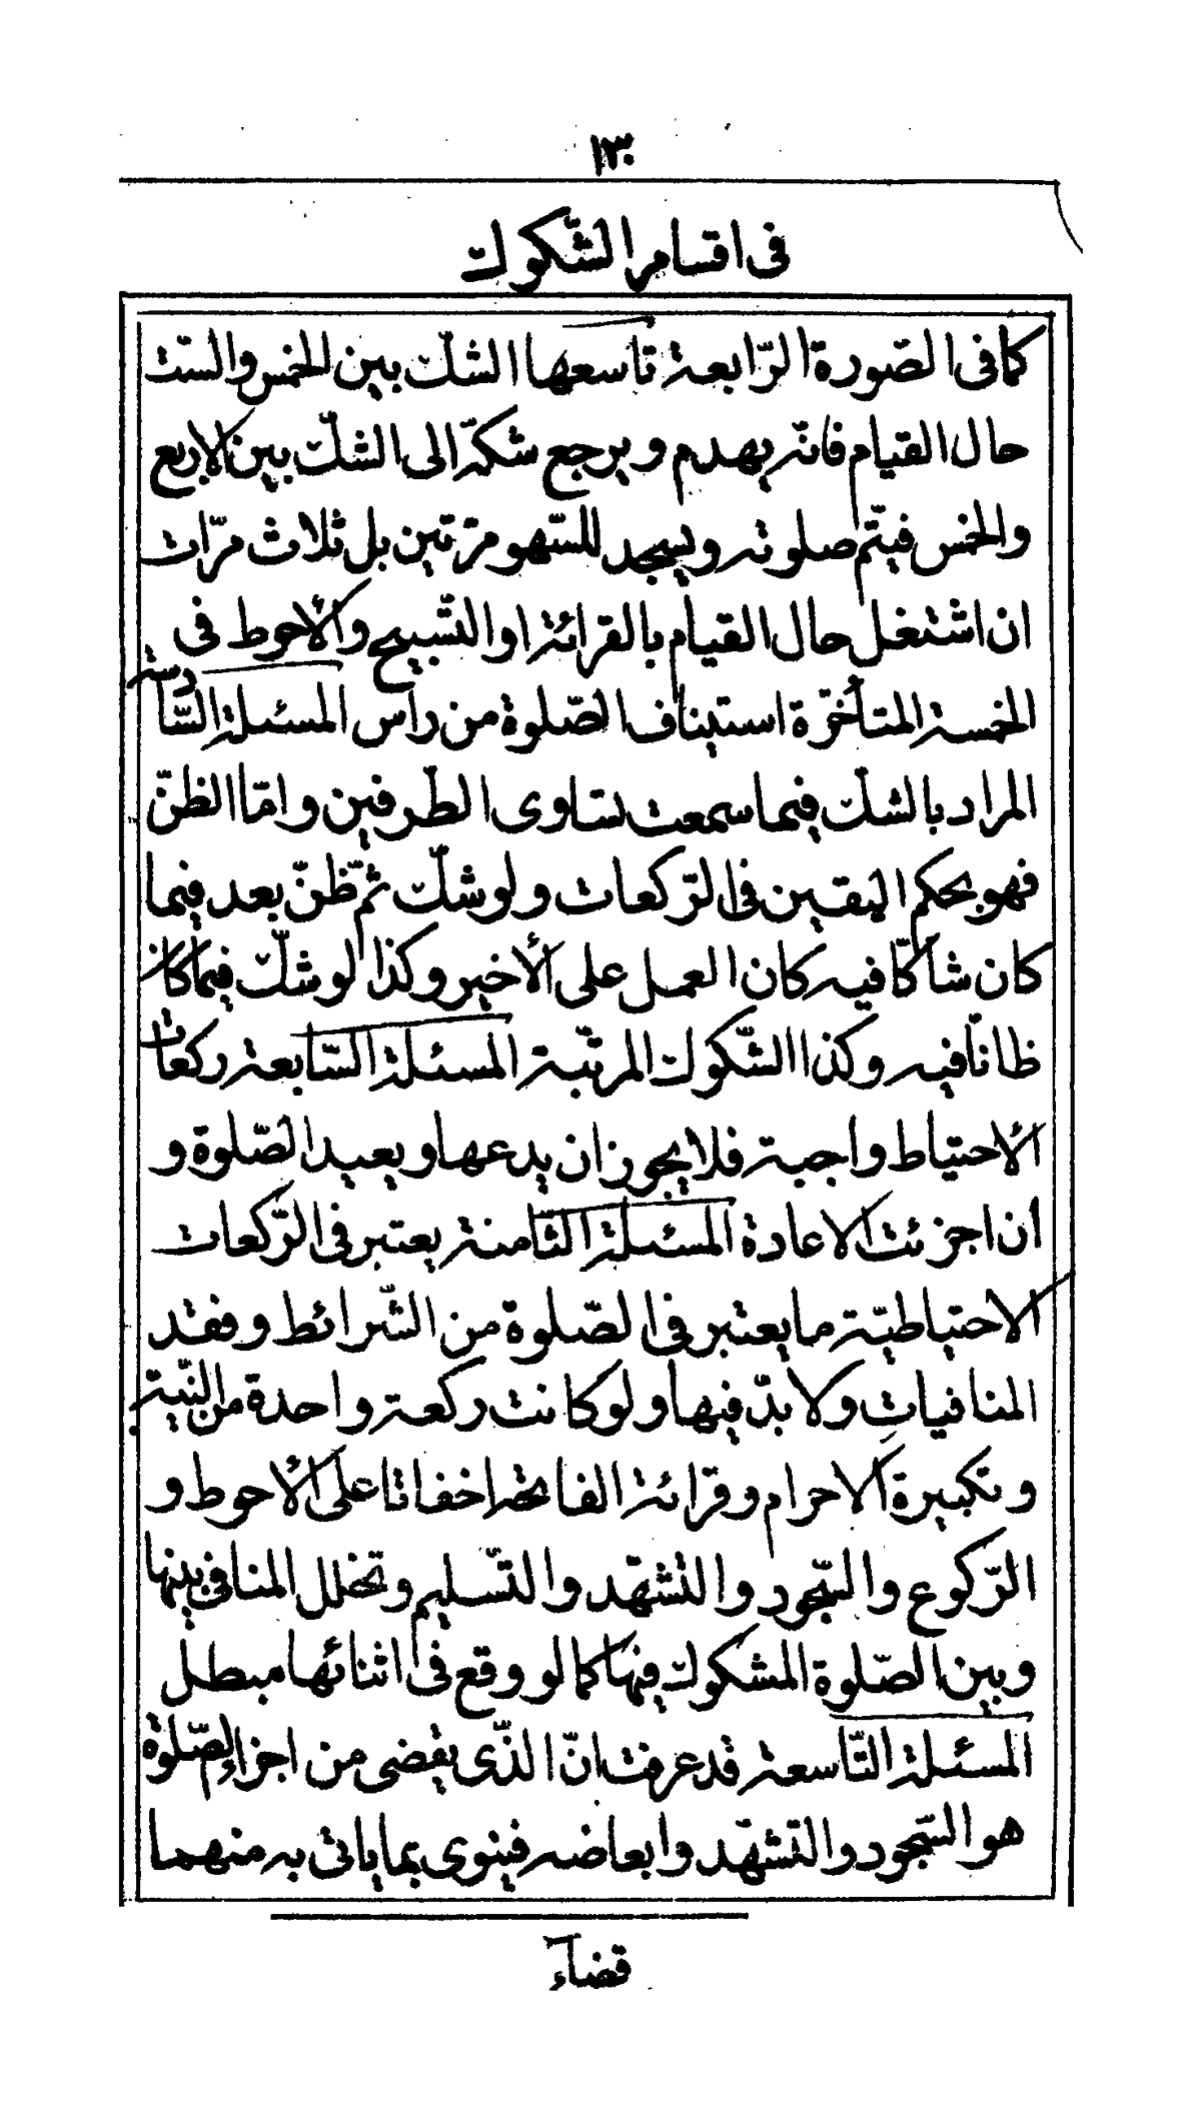 ١٣٠
فى اقسام الشّكوك
كما فى الصّورة الرّابعة تاسعها الشكّ بين الخمس والستّ
حال القيام فانّه يهدم ويرجع شكّه الى الشكّ بين الاربع
والخمس فيتّم صلوته ويسجد للسّهو مرّتين بل ثلاث مرّات
ان اشتغل حال القيام بالقرائة او التّسبيح والأحوط فى
الخمسة المتأخرّة استيناف الصّلوة من رأس المسئلة السّادسة
المراد بالشكّ فيما سمعت تساوى الطّرفين وامّا الظنّ
فهو بحكم اليقين فى الرّكعات ولو شكّ ثمّ ظنّ بعد فيما
كان شاكّا فيه كان العمل على الأخير وكذا لو شكّ فيما كان
ظانّا فيه وكذا الشّكوك المرتّبة المسئلة السّابعة ركعات
الأحتياط واجبة فلا يجوز ان يدعها ويعيد الصّلوة و
ان اجزئت الاعادة المسئلة الثّامنة يعتبر فى الرّكعات
الاحتياطيّة ما يعتبر فى الصّلوة من الشّرائط وفقد
المنافيات ولا بدّ فيها ولو كانت ركعة واحدة من النّيّة
وتكبيرة الاحرام وقرائة الفاتحة اخفاتا على الأحوط و
الرّكوع والسّجود والتشهّد والتّسليم وتخلل المنافى بينها
وبين الصّلوة المشكوك فيها كما لو وقع فى اثنائها مبطل
المسئلة التّاسعة قد عرفت انّ الذّى يقضى من اجزاء الصّلوة
هو السّجود والتشهّد وابعاضه فينوى بما ياتى به منهما
قضاء